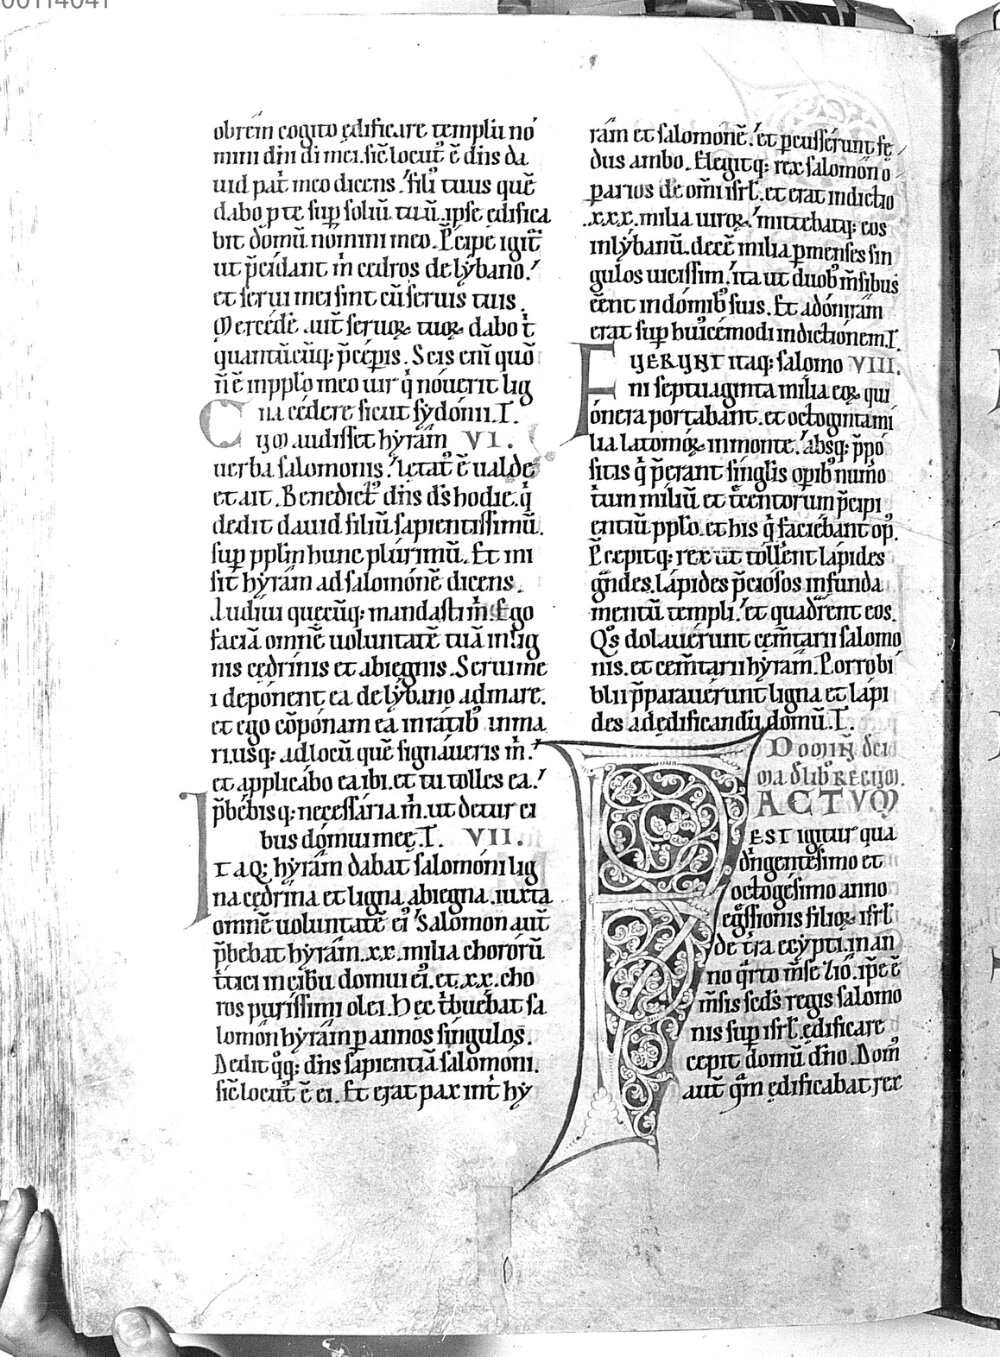 00114041
obrem cogito edificare templū no
mini dn̄i di mei. sic̄ locut᷒ ē dn̄s da
uid pat̄ meo dicens. fili᷒ tuus quē
dabo p te sup soliū tuū. ipse edifica
bit domū nomini meo. P̄cipe igit᷑
ut p̄cidant m̄ cedros de lybano.
et serui mei sint cū seruis tuis.
Mercedē aut̄ seruoꝝ tuoꝝ dabo t̄
quantūcūq: p̄cep̄is. Scis eni᷒ quō
n̄ ē in pplo meo uir q̄ nouerit lig
na cedere sicut sydonii. I.
Cum audisset hyram VI.
uerba salomonis. letat᷒ ē ualde
et ait. Benedict᷒ dn̄s ds̄ hodie. q̄
dedit dauid filiū sapientissimū.
sup pplm hunc plurimū. Et mi
sit hyram ad salomonē dicens.
Audiui quecūq: mandasti m̄. Ego
faciā omnē uoluntatē tuā in lig
nis cedrinis et abiegnis. Serui me
i deponent ea de lybano ad mare.
et ego cōponam ea in ratib᷒ in ma
ri. usq: ad locū quē signaueris m̄.
et applicabo ea ibi. et tu tolles ea.
p̄bebisq: necessaria m̄. ut detur ci
bus domui meę. I. VII.
Itaq: hyram dabat salomoni lig
na cedrina et ligna abiegna. iuxta
omnē uoluntatē ei᷒. Salomon aut̄
p̄bebat hyram .xx. milia chororū
tritici in cibū domui ei᷒. et .xx. cho
ros purissimi olei. Hec t᷑buebat sa
lomon hyram p annos singulos.
Dedit q̊q: dn̄s sapientiā salomoni.
sic̄ locut᷒ ē ei. Et erat pax int̄ hy
ram et salomonē. et pcusserunt fę
dus ambo. Elegitq: rex salomon o
parios de om̄i isrl̄. et erat indictio
.xxx. milia uiroꝝ. mittebatq: eos
in lybanū. decē milia p menses sin
gulos uicissim. ita ut duob᷒ m̄sibus
e᷒ent in domib᷒ suis. Et adoniram
erat sup hui᷒cemodi indictionem. I.
FUERUNT itaq: salomo VIII.
ni septuaginta milia eoꝝ qui
onera portabant. et octoginta mi
lia latomoꝝ in monte. absq: p̄po
sitis q̄ p̄erant singl̄is opib᷒ num̊o
trium miliū et t᷑centorum p̄cipi
entiū pplo. et his q̄ faciebant op᷒.
P̄cepitq: rex ut tollerent lapides
g᷑ndes. lapides p̄ciosos in funda
mentū templi. et quadrarent eos.
Q̊s dolauerunt cem̄tarii salomo
nis. et cem̄tarii hyram. Porro bi
blii p̄parauerunt ligna et lapi
des ad edificandū domū. I.
FACTUM
EST igitur qua
dringentesimo et
octogesimo anno
eg̃ssionis filioꝝ isrl̄
de t᷑ra egypti. in an
no q̄rto m̄se zio. ip̄e ē
m̄sis sc̄ds regis salomo
nis sup isrl̄. edificare
cepit domū dn̄o. Dom᷒
aut̄ q̄m edificabat rex